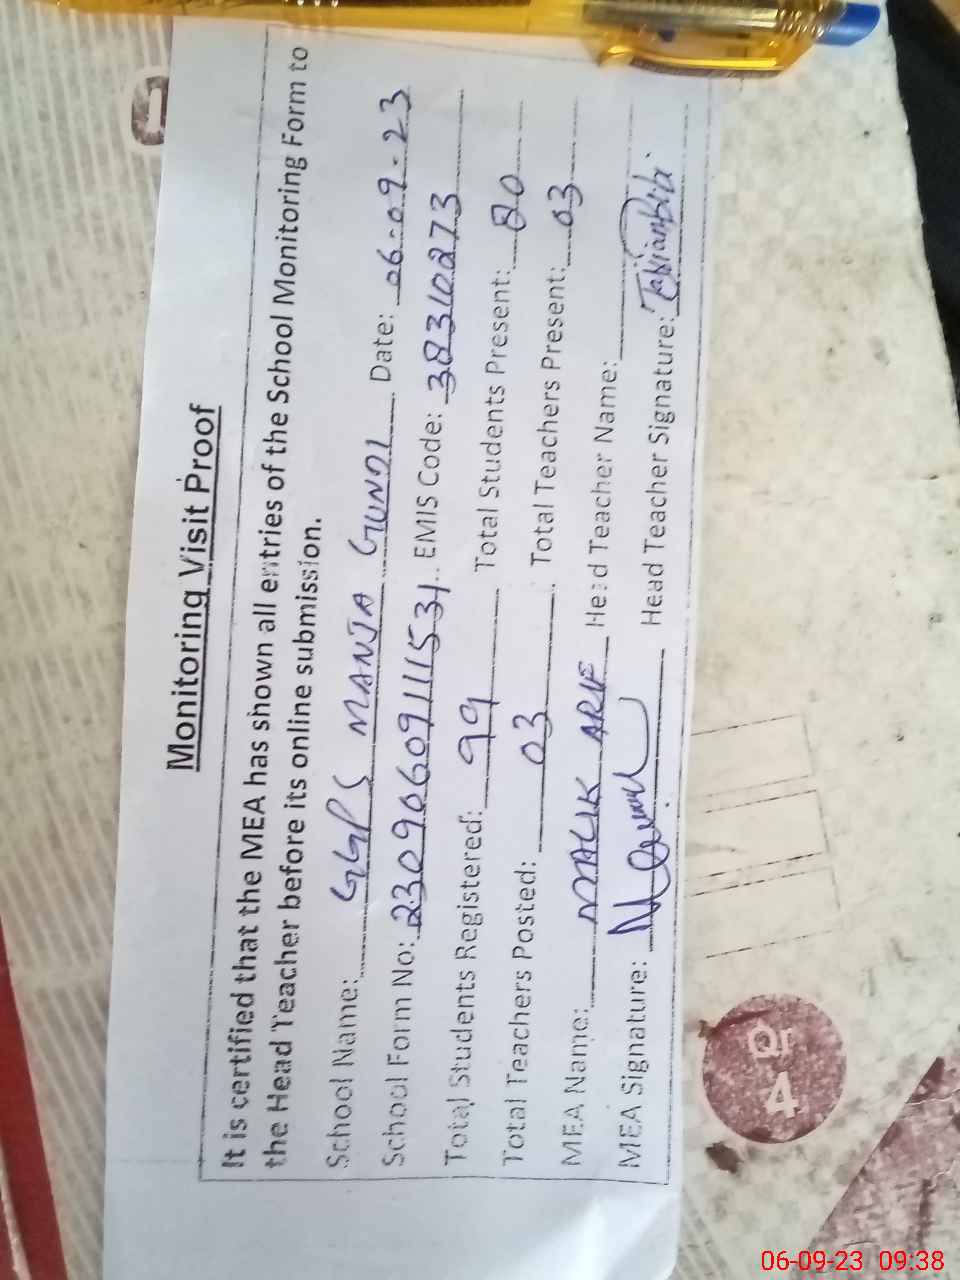 Monitoring Visit Proof
It is certified that the MEA has shown all entries of the School Monitoring Form to
the Head Teacher before its online submission.
School Name: GGPS MANJA GUNDI Date: 06-09-23
School Form No: 23090609111531 EMIS Code: 38310273
Total Students Registered: 99 Total Students Present: 80
Total Teachers Posted: 03 Total Teachers Present: 03
MEA Name: MALIK ARIF Head Teacher Name:
MEA Signature: Head Teacher Signature:
Qr
4
06-09-23 09:38